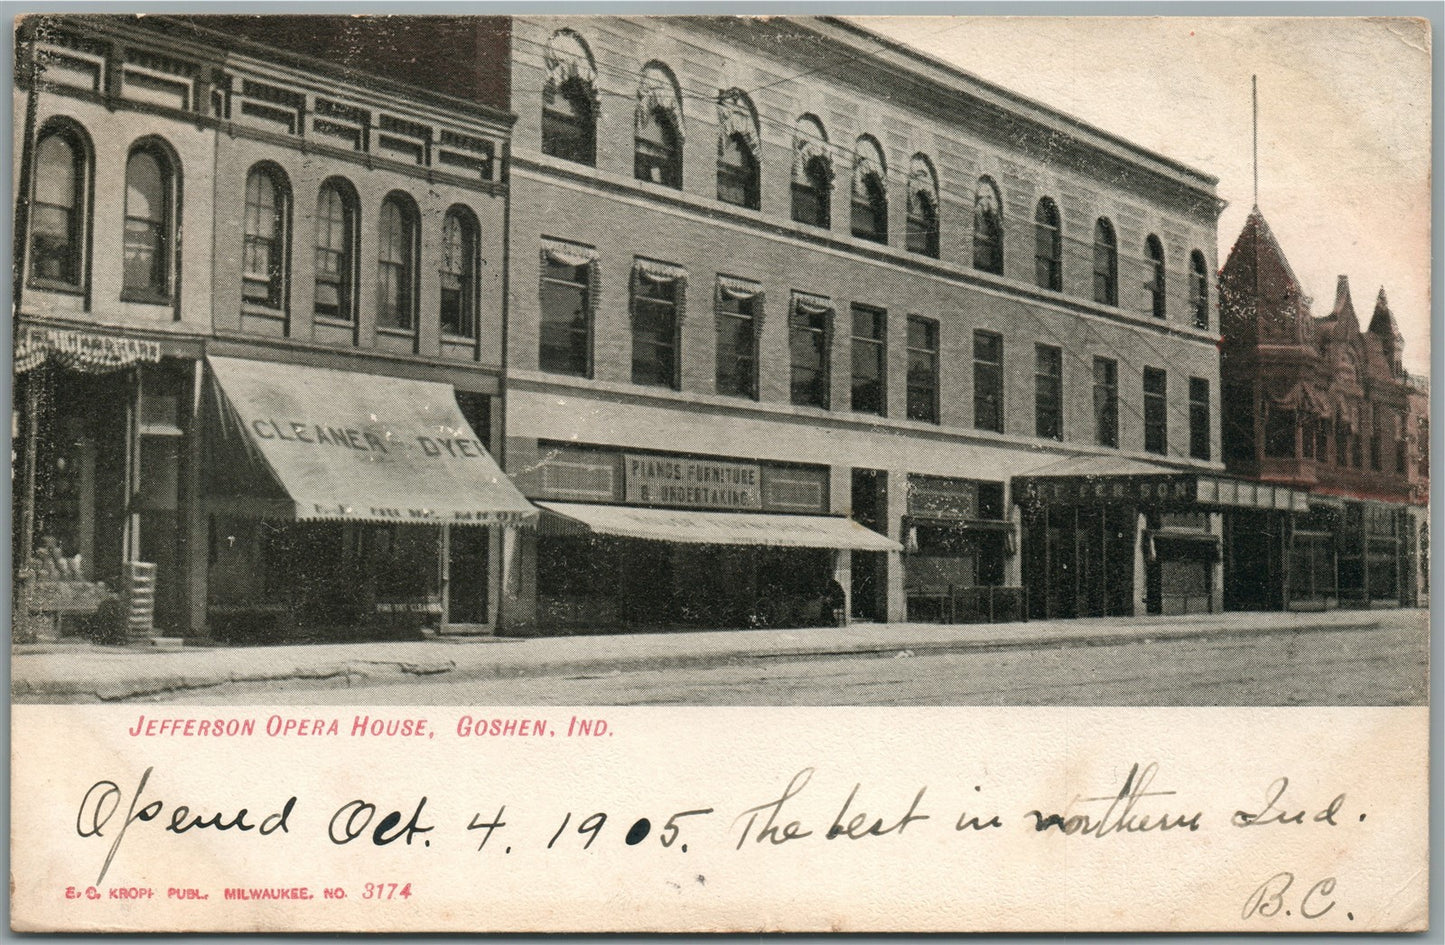 HARDWARE
CLEANER AND DYER
PIANOS, FURNITURE
& UNDERTAKING
JEFFERSON
JEFFERSON OPERA HOUSE, GOSHEN, IND.
Opened Oct. 4, 1905. The best in northern Ind.
B.C.
E. C. KROPF PUBL., MILWAUKEE. NO. 3174